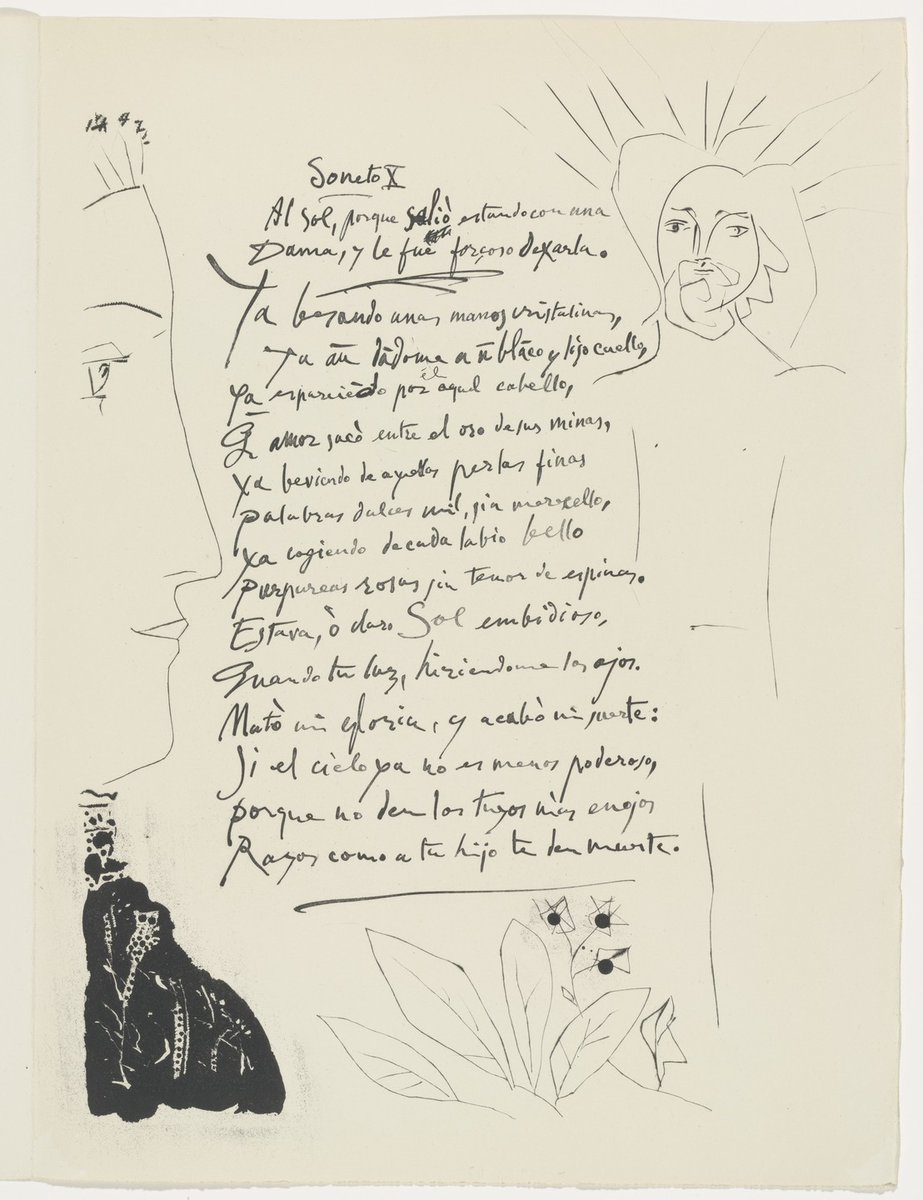 Soneto X
Al Sol, porque saliò estando con una
Dama, y le fue forçoso dexarla.
Ya besando unas manos cristalinas,
ya āu̅dādome a ū blāco y liso cuello,
ya esparciēdo por él aquel cabello,
Q̄ amor sacò entre el oro de sus minas,
ya beviendo de aquellas perlas finas
palabras dulces mil, sin merecello,
ya cogiendo de cada labio bello
purpureas rosas sin temor de espinas.
Estava, ò claro Sol embidioso,
Quando tu luz, hiriendome los ojos.
Matò mi gloria, y acabò mi suerte:
Si el cielo ya no es menos poderoso,
porque no den los tuyos màs enojos
Rayos como a tu hijo te den muerte.